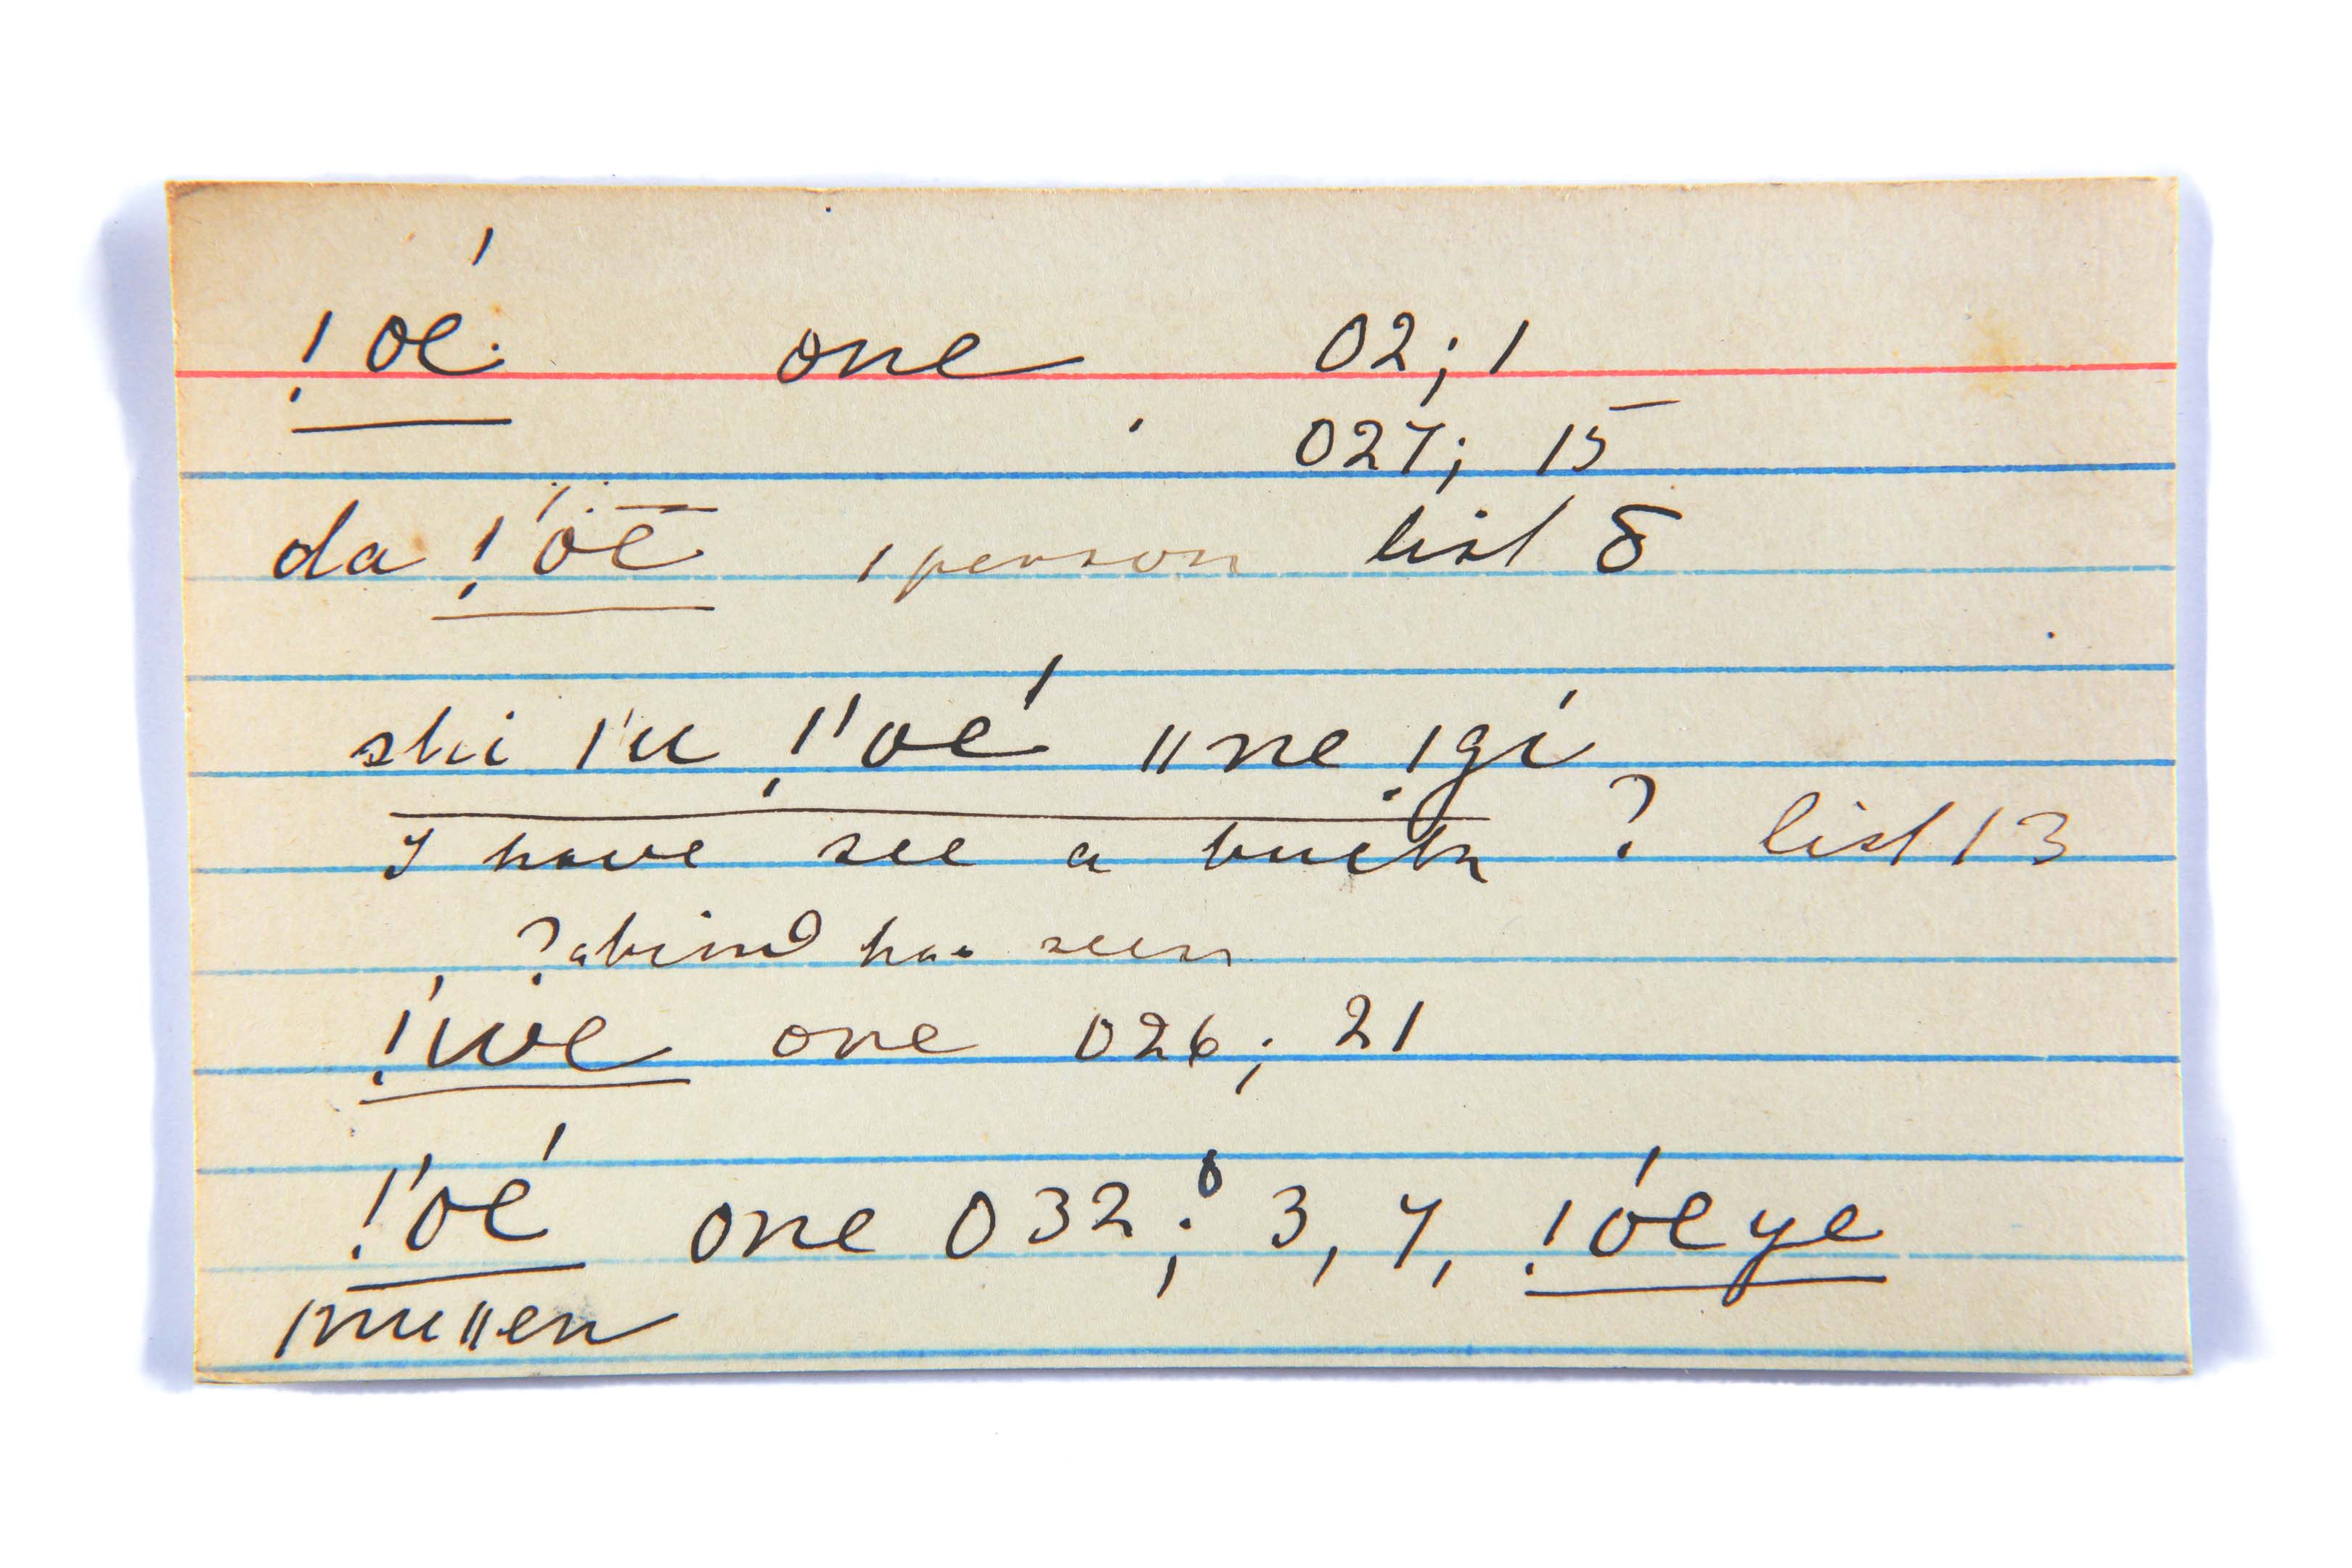 !oé one 02; 1
027; 15
da !'oē 1 person list 8
shi |'u !'oé ǁne !gí
I have see a buck ? list 13
? a bird has seen
!'we one 026; 21
!'oé one 032; 3, 7, !óeye
ǀnuǁen